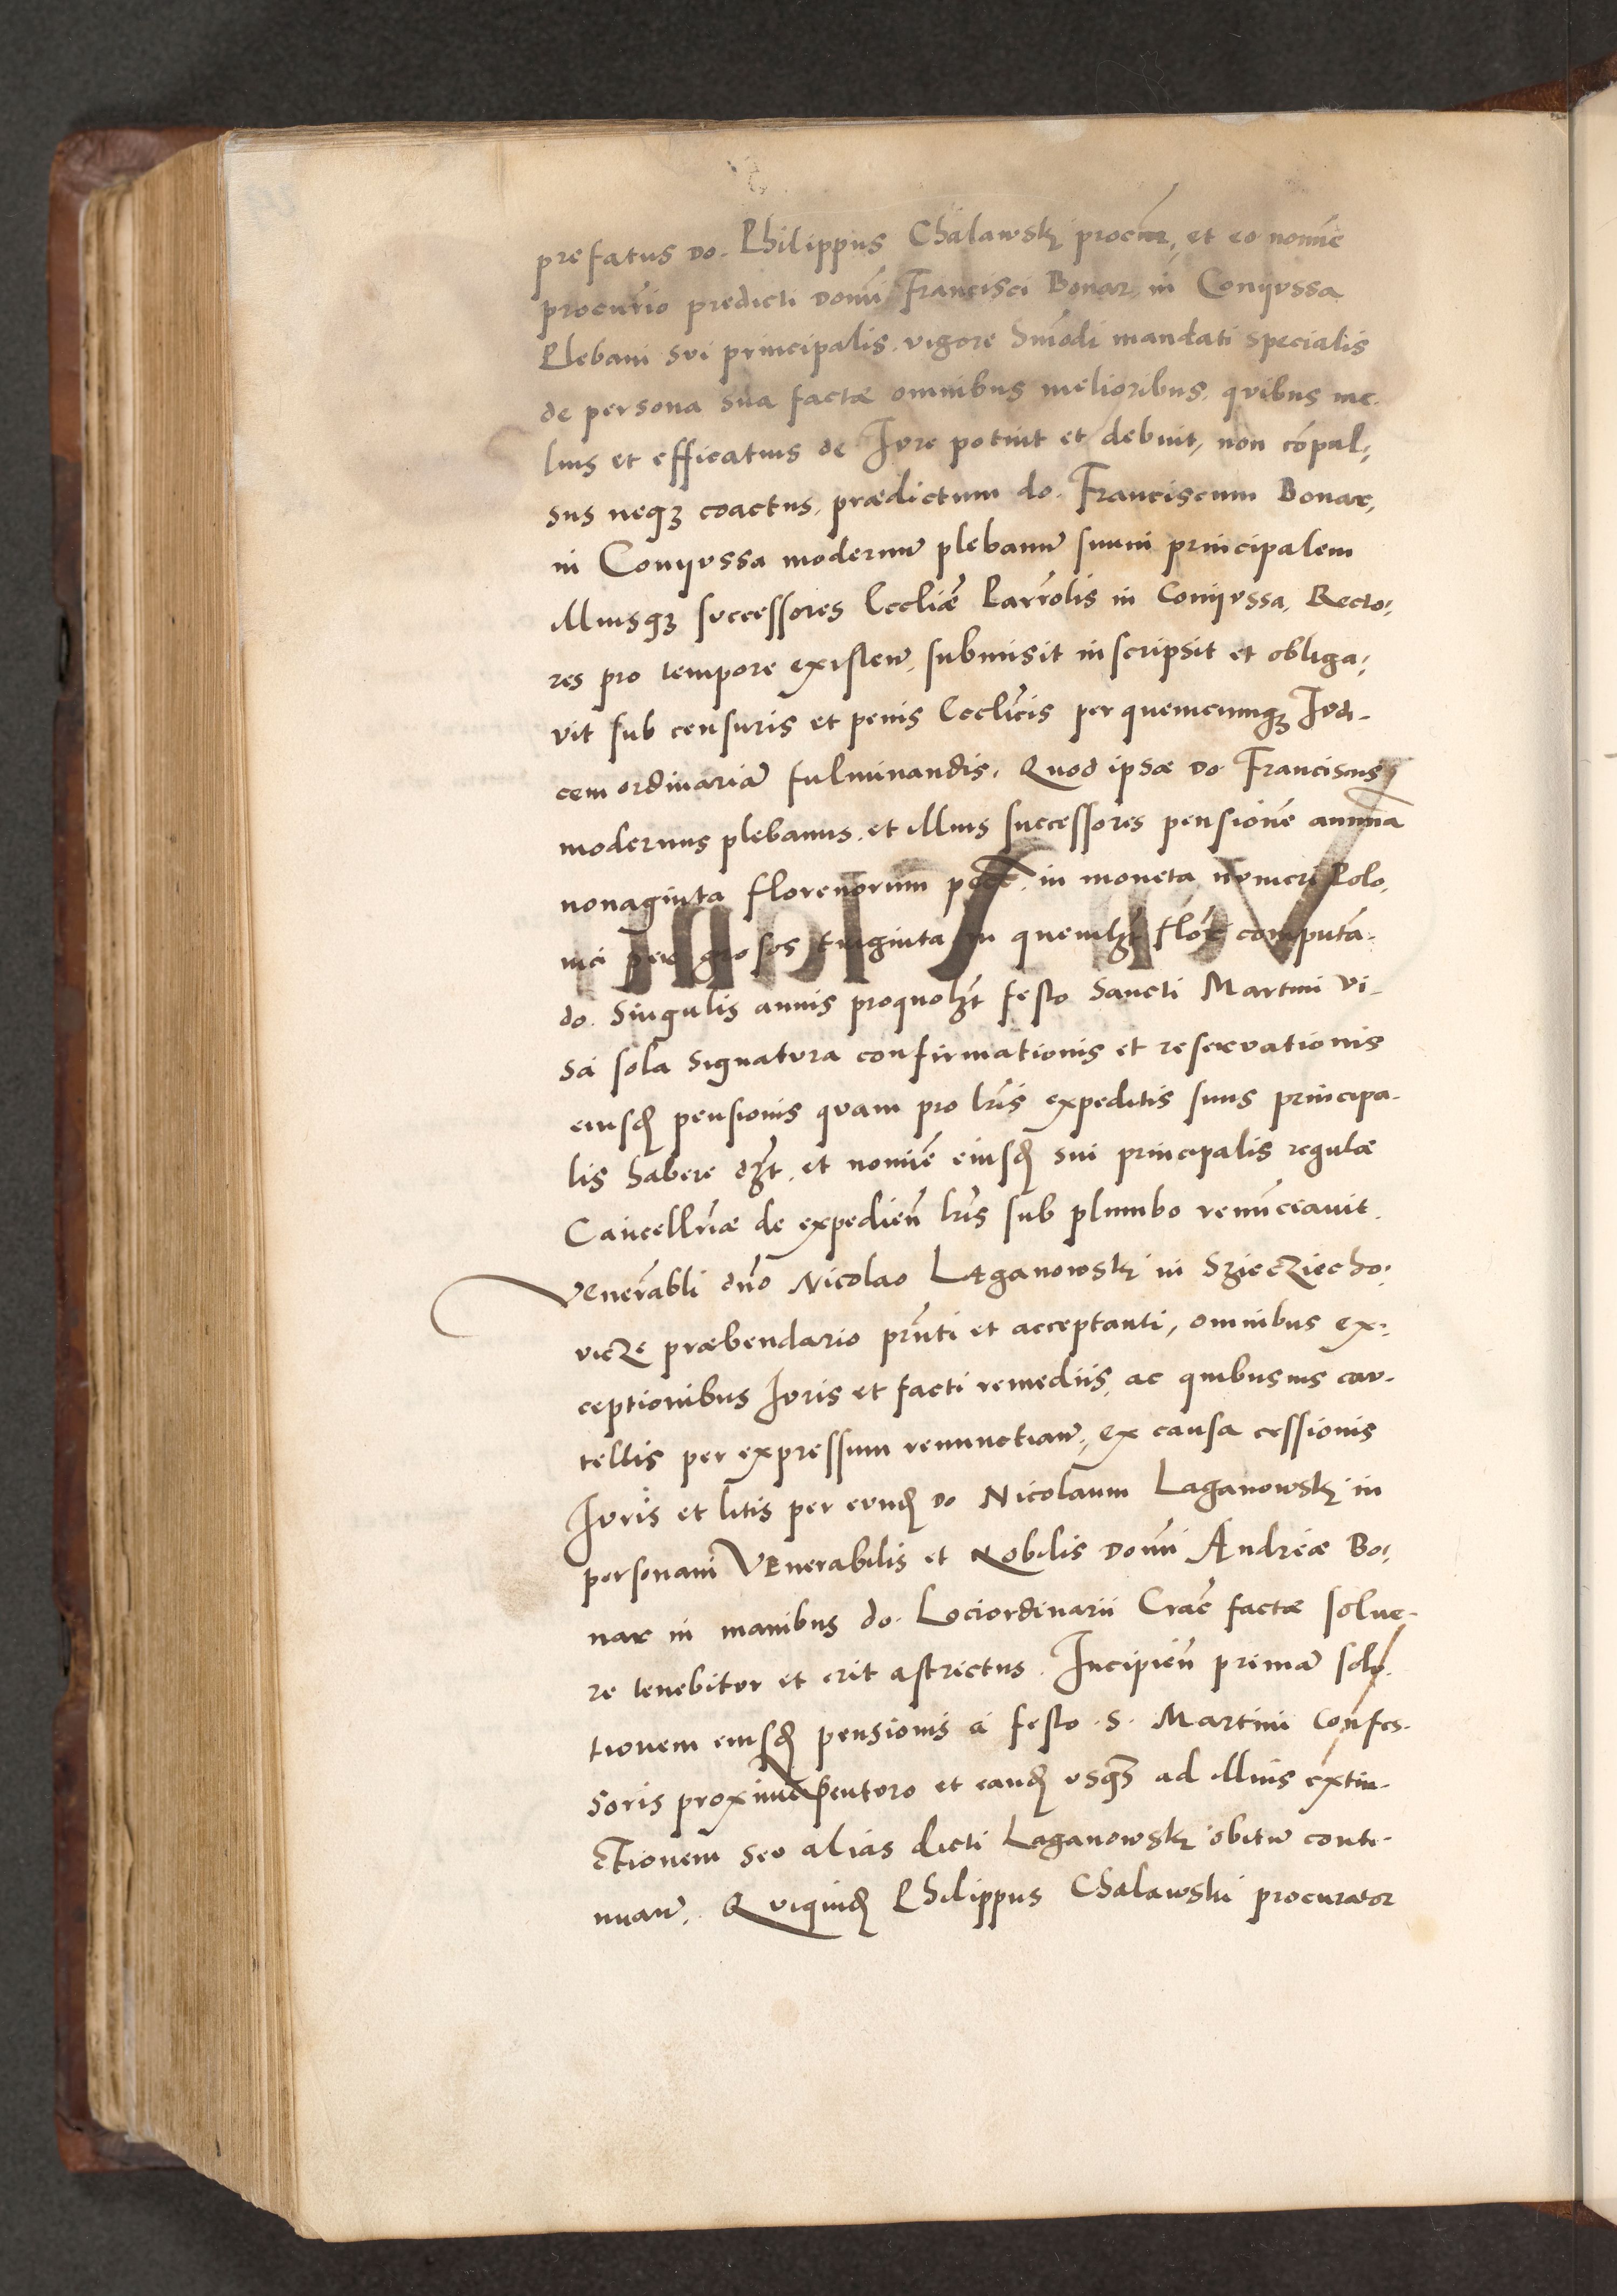 prefatus do. Philippus Chalawskj procur, et eo nomīe
procurio predicti domī Francisci Bonar, in Conijvssa
Plebani svi principalis. vigore hmōdi mandati specialis
de persona sua factæ omnibus melioribus, qvibus me-
lius et efficatius de Ivre potuit et debuit, non cōpul-
sus neqꝫ coactus, prædictum do. Franciscum Bonar,
in Conijvssa modernū plebanū suum principalem
illiusqꝫ svccessores Eccliæ Parrolis in Conijvssa, Recto-
res pro tempore existen̄, submisit inscripsit et obliga-
vit sub censuris et penis Ecclīcis per quemcumqꝫ Ivdi-
cem ordinariū fulminandis. Quod ipsæ do Franciscus
modernus plebanus, et illius successores pensionē annuā
nonaginta florenorum in moneta nvmeri Polo
nici per grosos triginta in quemlꝫt flōr computā-
do. Singulis annis proquolꝫt festo Sancti Martini vi-
sa sola signatura confirmationis et reservationis
eiusdꝫ pensionis qvam pro lrīs expeditis suus principa-
lis habere dꝫt, et nomīe eiusdꝫ sui principalis regulæ
Cancellriæ de expedien̄ lrīs sub plumbo renunciavit
Venerabli dn̄o Nicolao Lęganowskj in Sziecziecho-
vicze præbendario prn̄ti et acceptanti, omnibus ex-
ceptionibus Ivris et facti remediis, ac quibusuis cav-
tellis per expressum renunctian̄, ex causa cessionis
Ivris et litis per evndꝫ do Nicolaum Laganowskj in
personam Venerabilis et Nobilis domī Andreæ Bo-
nar in manibus do. Lociordinarii Crac̄ factæ solue-
re tenebitvr et erit astrictus. Incipien̄ primā solv-
tionem eiusdꝫ pensionis a festo .S. Martini Confes-
soris proxime ventvro et eandꝫ vsqꝫ ad illius extin-
ctionem sev alias dicti Laganowskj obitū conti-
nuan̄. Qviquidꝫ Philippus Chalawski procurator